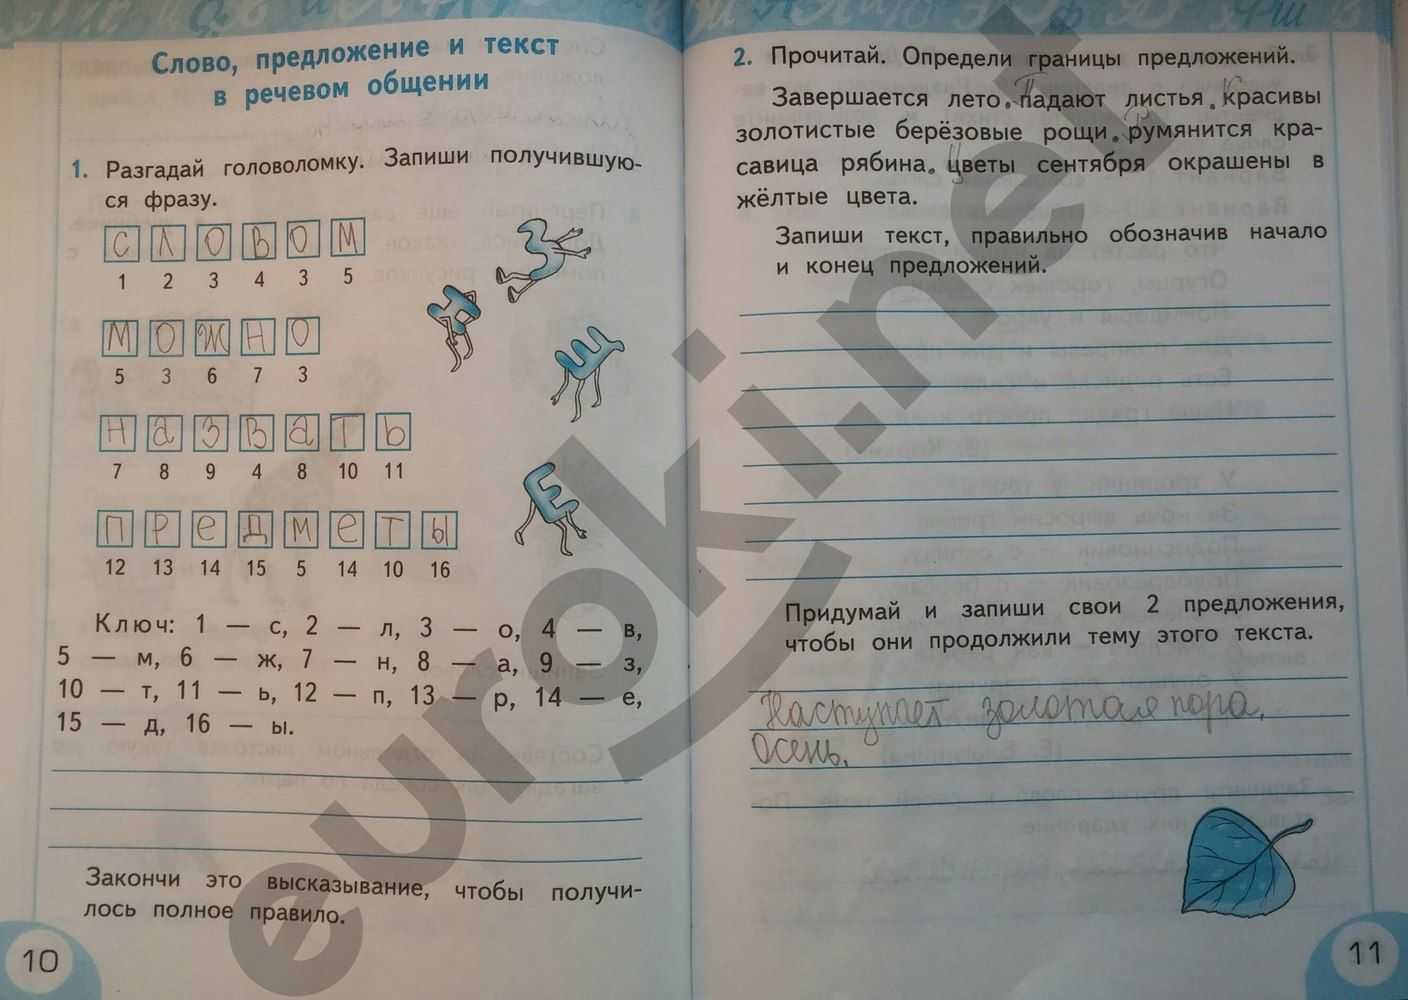 Слово, предложение и текст
в речевом общении
1. Разгадай головоломку. Запиши получившую-
ся фразу.
С Л О В О М
1 2 3 4 3 5
М О Ж Н О
5 3 6 7 3
Н а З В а Т Ь
7 8 9 4 8 10 11
П Р е Д М е Т Ы
12 13 14 15 5 14 10 16
З
Н
Ш
Е
Ключ: 1 — с, 2 — л, 3 — о, 4 — в,
5 — м, 6 — ж, 7 — н, 8 — а, 9 — з,
10 — т, 11 — ь, 12 — п, 13 — р, 14 — е,
15 — д, 16 — ы.
Закончи это высказывание, чтобы получи-
лось полное правило.
10
2. Прочитай. Определи границы предложений.
Завершается лето. Падают листья. Красивы
золотистые берёзовые рощи. Румянится кра-
савица рябина. Цветы сентября окрашены в
жёлтые цвета.
Запиши текст, правильно обозначив начало
и конец предложений.
Придумай и запиши свои 2 предложения,
чтобы они продолжили тему этого текста.
Наступает золотая пора.
Осень.
11
euroki.net